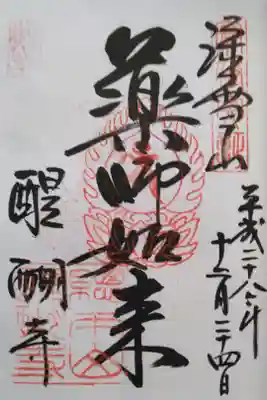 深雪山
平成二十八年
十二月二十四日
薬師如来
醍醐寺